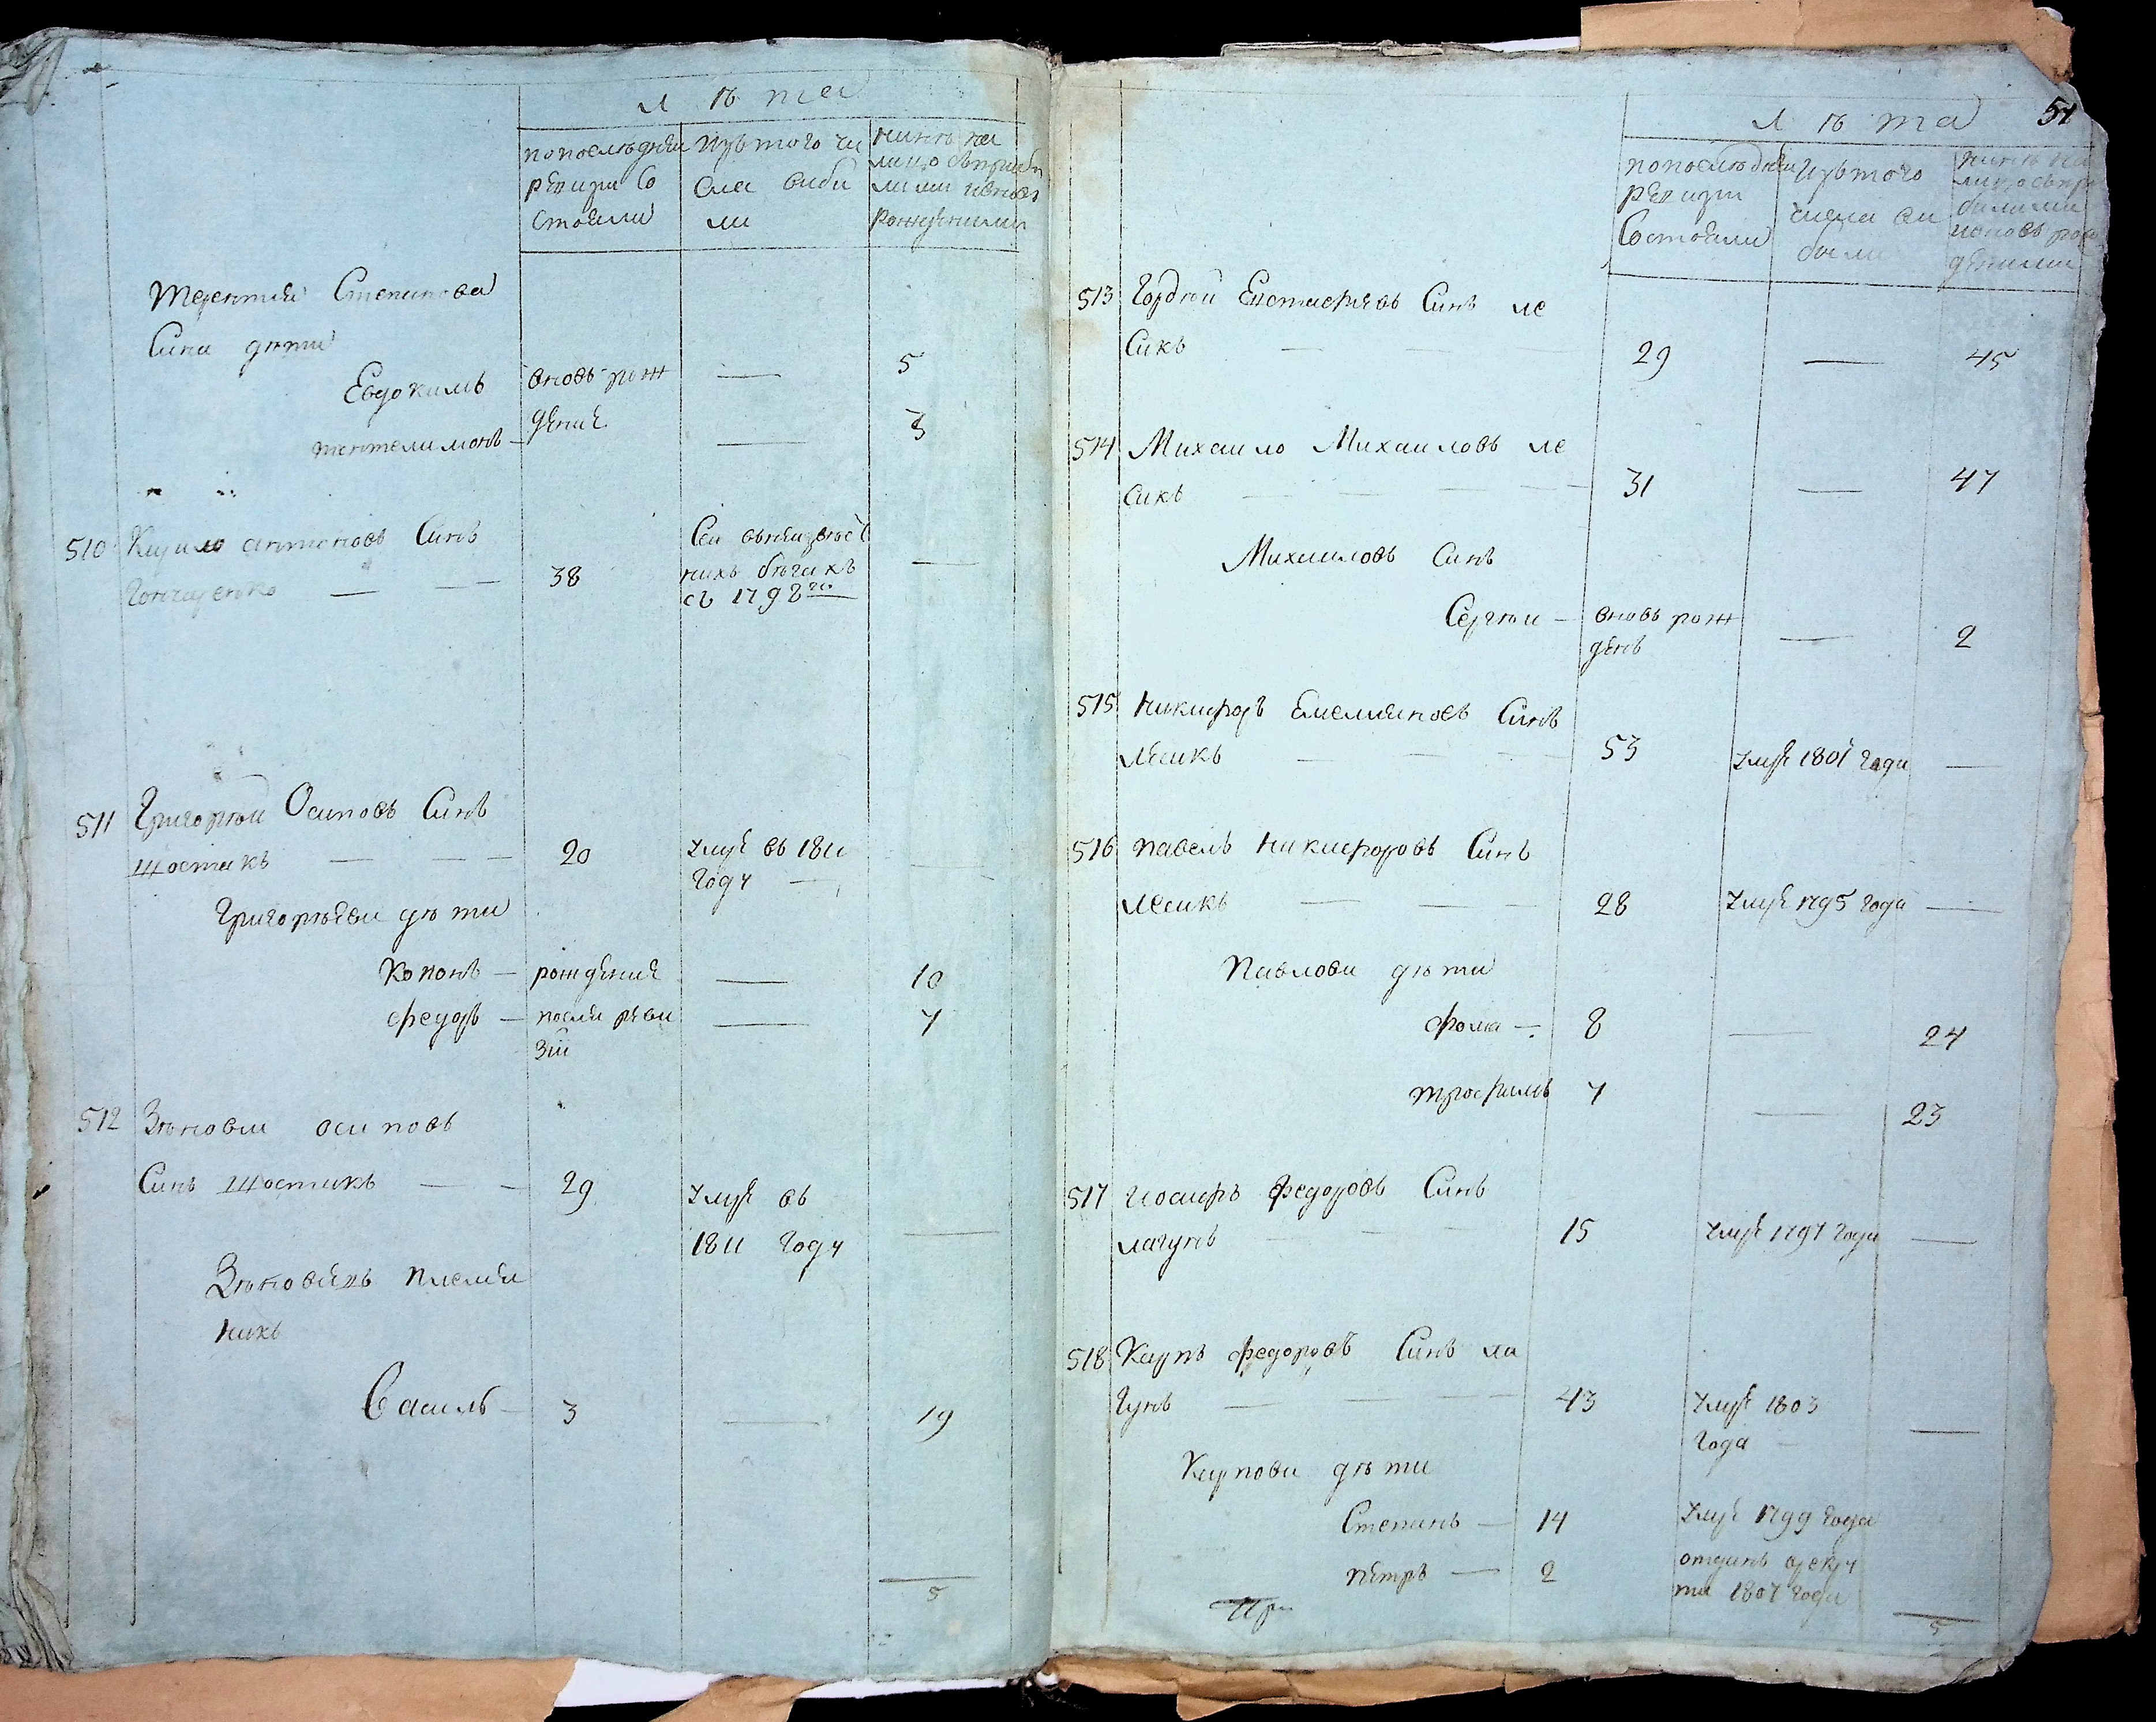 лѣта
попоследней ревизи состояли
изътого числа выбили
нинѣ на лицо съприбилими ивновъ рожденними
Терентия Степанова
Сина дѣти
Евдокимъ вновь рож — 5
дение
пантелимонъ — — 3
510 Кирило антоновъ Синъ
Гончаренко — — 38 —
нихъ бѣгахъ
съ 1798го
511 Григорий Осиповъ Синъ
Шостакъ — — — 20 Умре въ 1811 —
Году —
Григориеви дѣти
Кононъ — рождение — 10
Федоръ — после реви — 7
зий
512 Зѣновий осиповъ
Синъ Шостакъ — — 29 Умре въ
1811 Году —
Зѣновиевъ племя
никъ
Василь — 3 — 19
5
51
лѣта
попоследней ревизи Состояли
изътого числа выбыли
нинѣ на лицо съприбилими ивновъ рожденими
513 Гордей Евстафиевъ Синъ ле
сикъ — — — 29 — 45
514 Михаило Михаиловъ ле
сикъ — — — — 31 — 47
Михаиловъ Синъ
Сергей — вновь рож
денъ — 2
515 Никифоръ Емелияновъ Синъ
Лесикъ — — — 53 Умре 1801 Года —
516 павелъ Никифоровъ Синъ
Лесикъ — — — 28 Умре 1795 Года —
Павлови дѣти
Фома — 8 — 24
Трофимъ 7 — 23
517 иосифъ Федоровъ Синъ
лагунъ — — — 15 Умре 1797 Года —
518 Карпъ Федоровъ Синъ ла
гунъ — — — 43 Умре 1803
Года — —
Карпови дѣти
Степанъ — 14 Умре 1799 Года
петръ — 2 отданъ врекру
ти 1807 Года
5